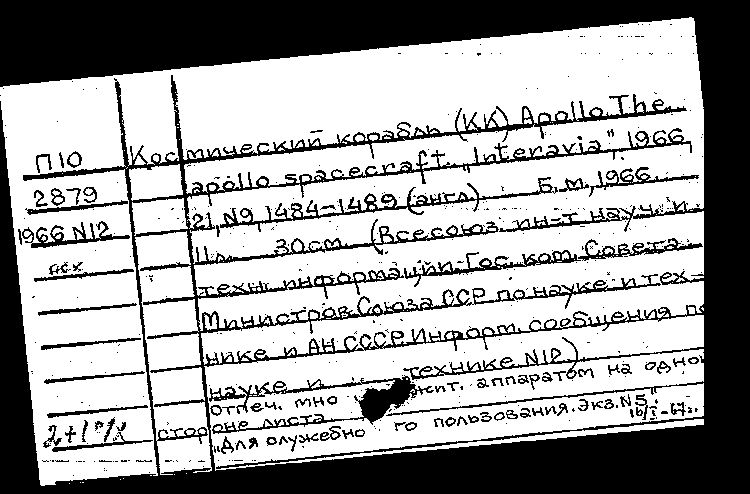 Космический корабль (КК) Apollo. The
П10
apollo spacecraft. "Interavia", 1966,
2879
21, N9, 1484-1489 (англ.) Б.м., 1966.
1966 N12
11 л. 30см. (Всесоюз. ин-т науч. и
пех
техн. информации Гос. ком. Совета
Министров Союза ССР по науке и тех-
нике и АН СССР. Информ. сообщения по
науке и технике N12.)
отпеч. мно жит. аппаратом на одной
стороне листа.
"Для служебно го пользования. Экз. N5."
16/I-67г.